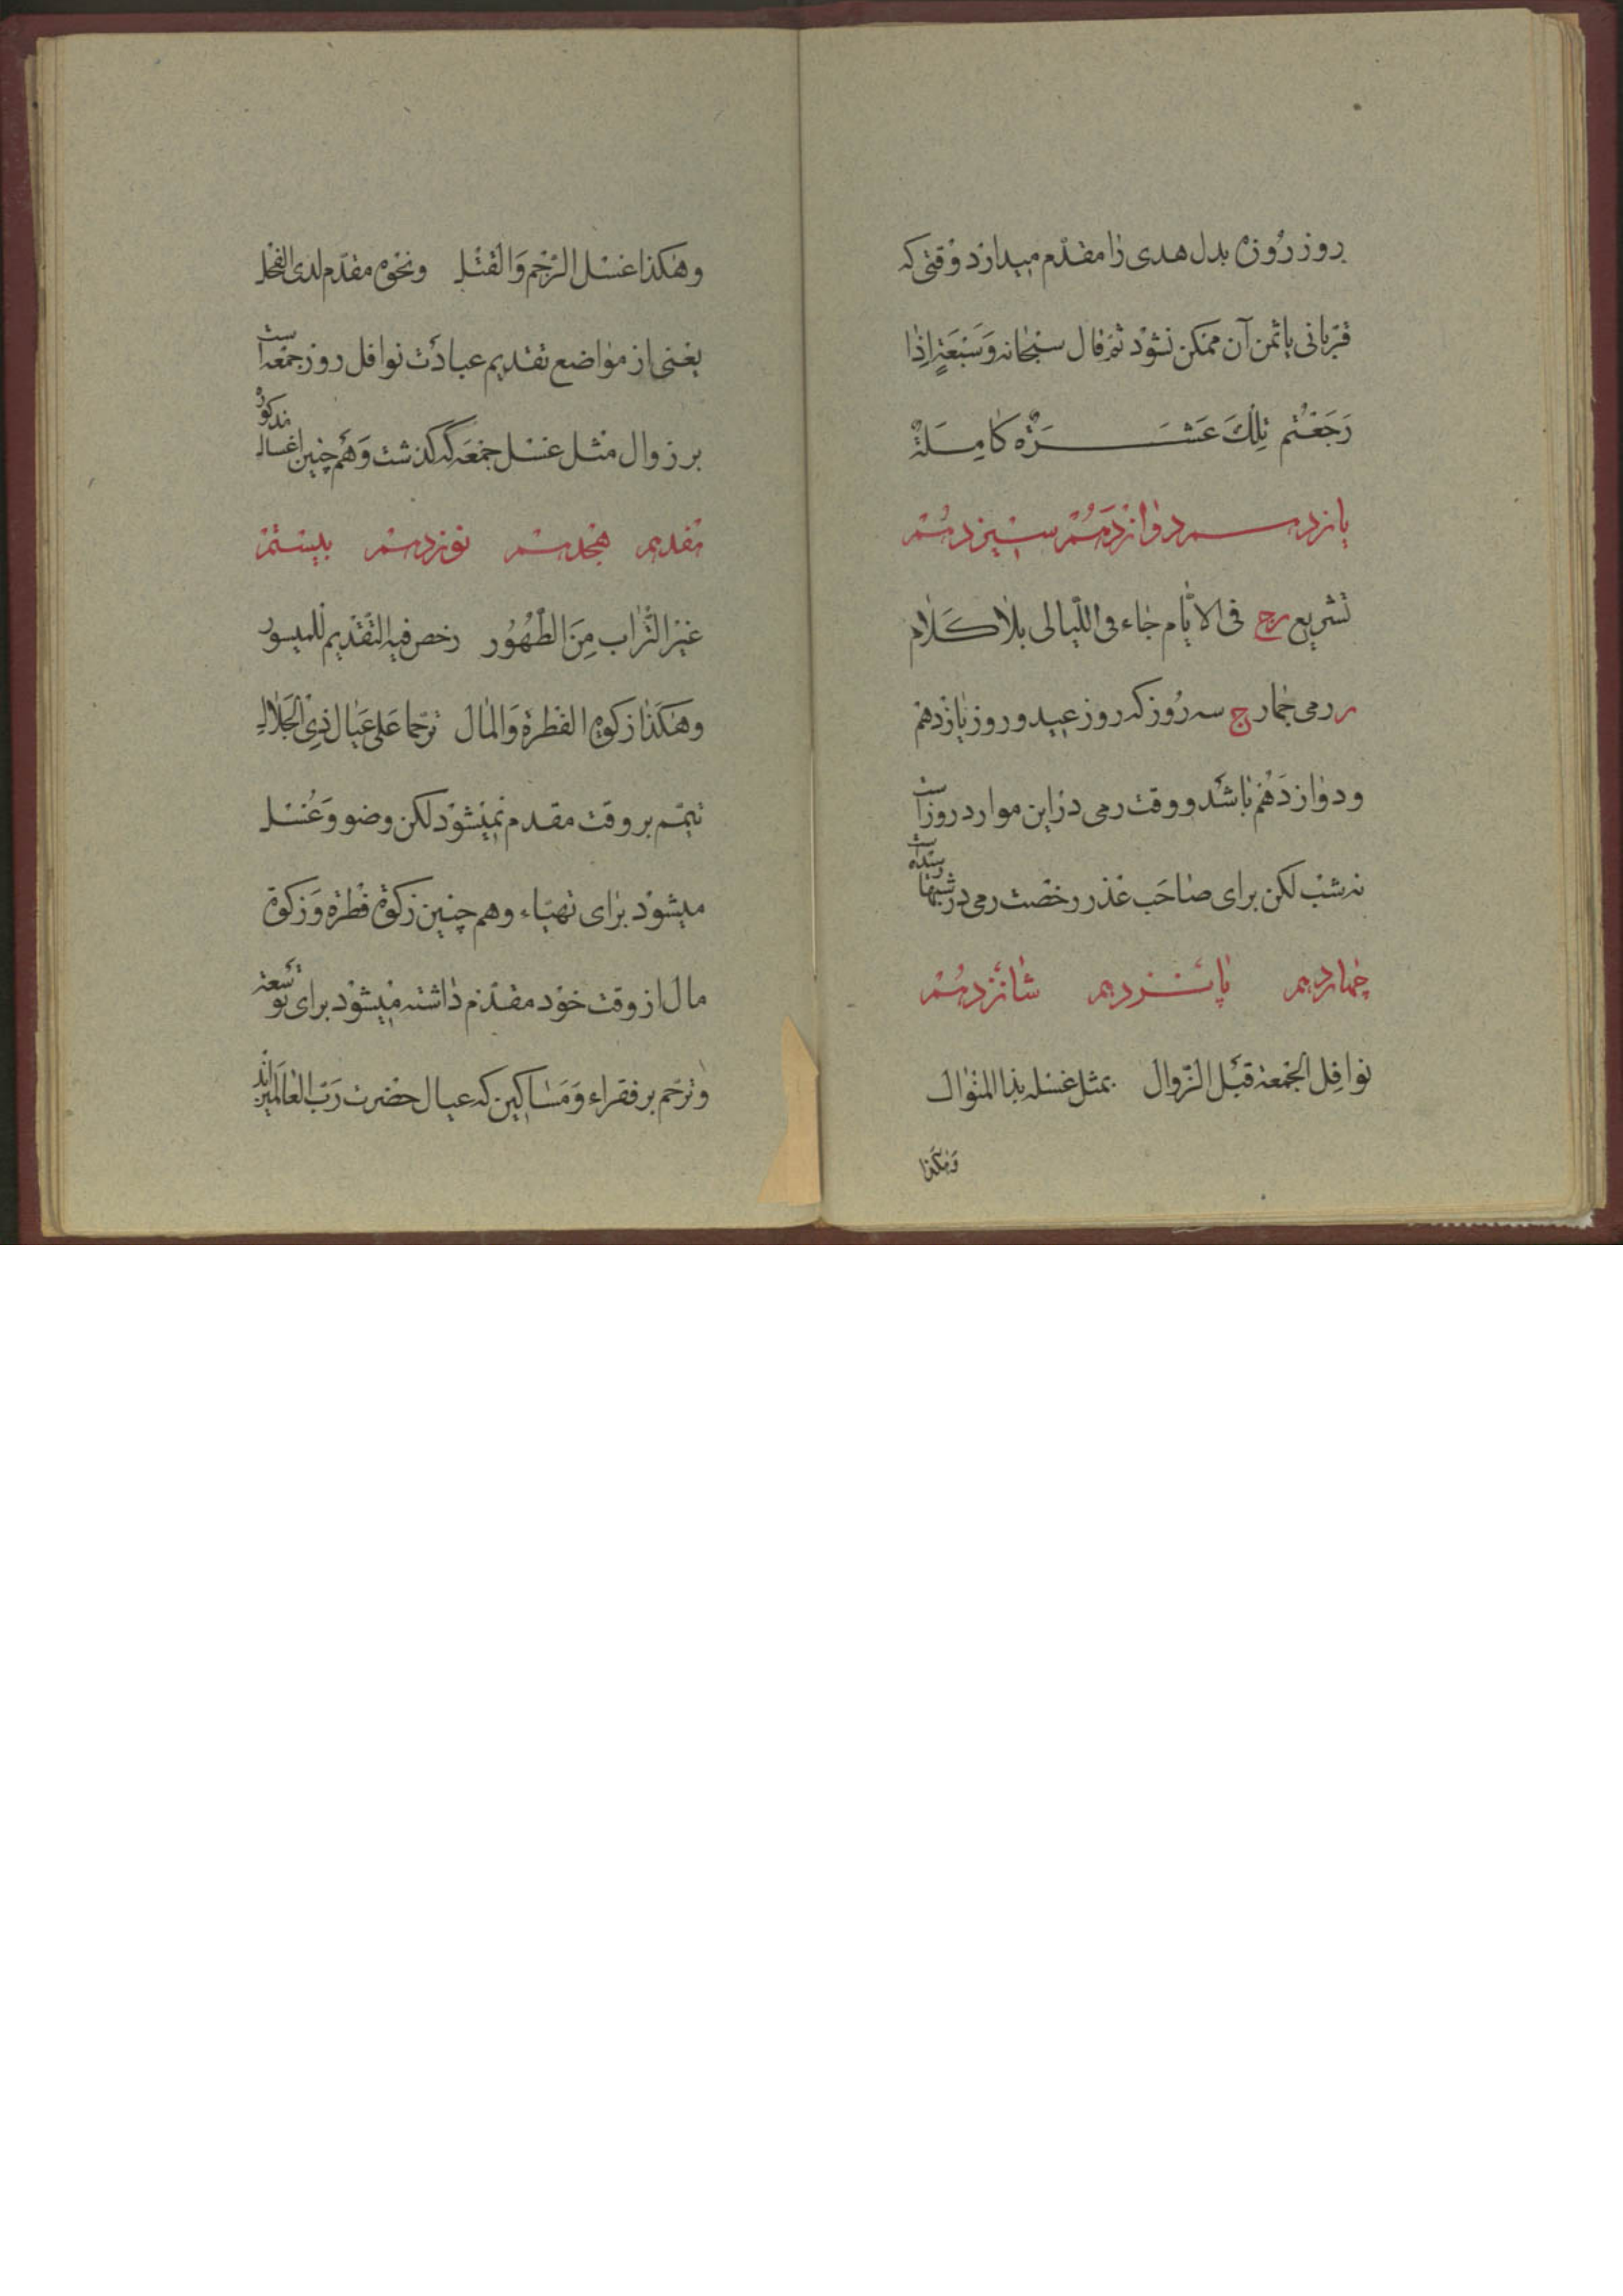 روز روزه بدل هدی را مقدّم میدارد وقتی که
قربانی یا ثمن آن ممکن نشود ثم قال سبحانه وَسَبْعَةٍ اِذا
رَجَعْتُم تِلْكَ عَشَرَةٌ کامِلَةٌ
یازدهم دوازدهم سیزدهم
تشریع رمی فی الایّام جاء فی اللّیالی بلا کلام
رمی جمار سه روز که روز عید و روز یازدهم
و دوازدهم باشد و وقت رمی در این موارد روز است
نه شب لکن برای صاحب عذر رخصت رمی در شبها
چهاردهم پانزدهم شانزدهم
نوافل الجمعة قبل الزّوال بمثل غسله بذا المنوال
وهٰکذا
وهٰکذا غسل الرّجم وَالقتل ونحوه مقدّم لدی الفحل
یعنی از مواضع تقدیم عبادت نوافل روز جمعه است
بر زوال مثل غسل جمعه که گذشت وَهم چنین اغسال مذکوره
هفدهم هجدهم نوزدهم بیستم
غیر التّراب مِنَ الطّهُور رخص فیه التّقدیم للمیسور
وهکذا زکوة الفطرة وَالمال ترحّما عَلی عیال ذی الجلال
تیمّم بر وقت مقدم نمیشود لکن وضو وَغُسل
میشود برای تهیّاء وهم چنین زکوة فطره وَزکوة
مال از وقت خود مقدّم داشته میشود برای توسعه
وترحّم بر فقراء وَمَساکین که عیال حضرت رَبّ العالمین‌اند